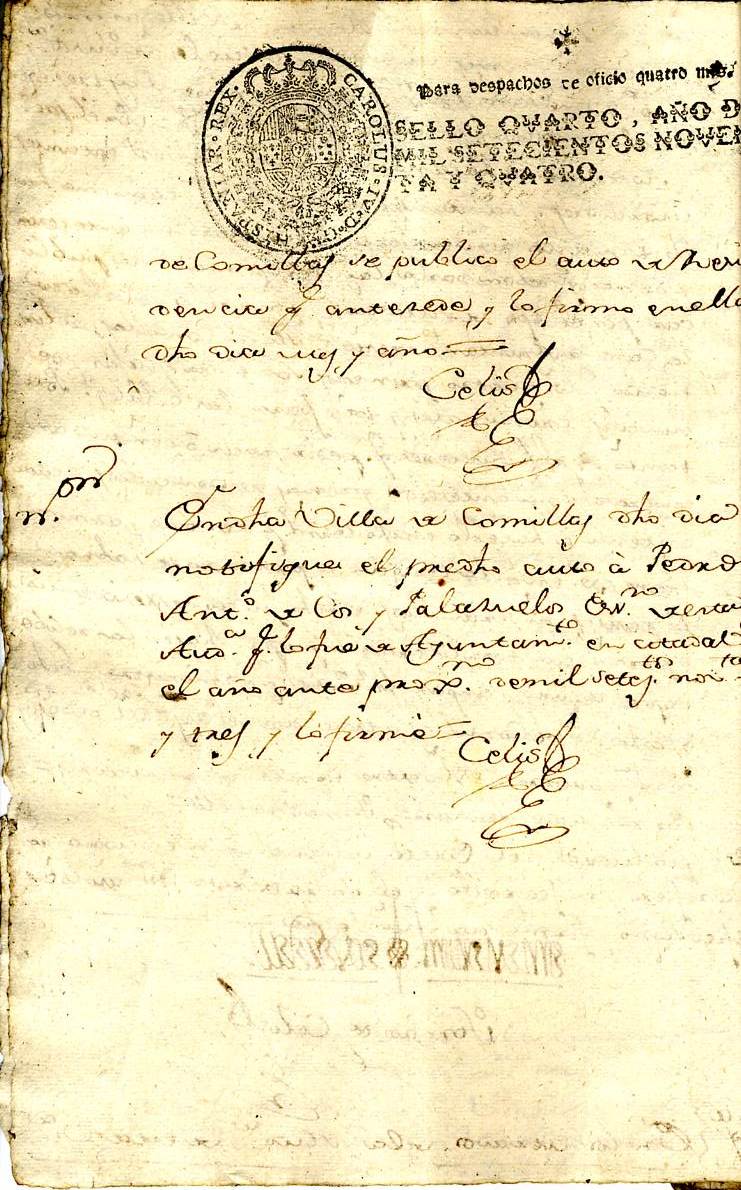 CAROLUS·IV·D·G·HISPANIAR·REX·
Para despachos de oficio quatro mrs.
SELLO QVARTO, AÑO D
MIL SETECIENTOS NOVEN
TA Y QVATRO.
de Comillas se publico el auto de Resi
dencia q. antezede y lo firmo en ella
dho dia mes y año
Celis
n.on
En dha Villa de Comillas dho dia
notifique el predho auto à Pedro
Ant.o de Cos y Palazuelos Es.no
Aud.a q. lo fue de Ayuntam.to en
el año ante prox.mo de mil setes. nov.ta
y tres y lo firmè
Celis